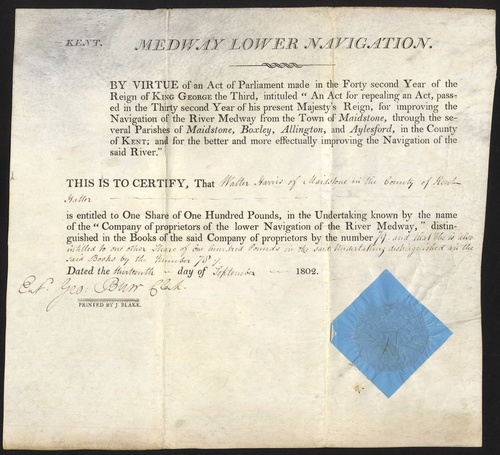 KENT.
MEDWAY LOWER NAVIGATION.
BY VIRTUE of an Act of Parliament made in the Forty second Year of the
Reign of KING GEORGE the Third, intituled “ An Act for repealing an Act, pass-
ed in the Thirty second Year of his present Majesty's Reign, for improving the
Navigation of the River Medway from the Town of Maidstone, through the se-
veral Parishes of Maidstone, Boxley, Allington, and Aylesford, in the County
of KENT; and for the better and more effectually improving the Navigation of the
said River.”
THIS IS TO CERTIFY, That Walter Harris of Maidstone in the County of Kent
Hatter
is entitled to One Share of One Hundred Pounds, in the Undertaking known by the name
of the “ Company of proprietors of the lower Navigation of the River Medway,” distin-
guished in the Books of the said Company of proprietors by the number 77 and that he is also
intitled to one other Share of One hundred Pounds in the said Undertaking distinguished in the
said Books by the Number 78
Dated the thirteenth day of September 1802.
Entd. Geo. Burr Clerk.
PRINTED BY J. BLAKE.